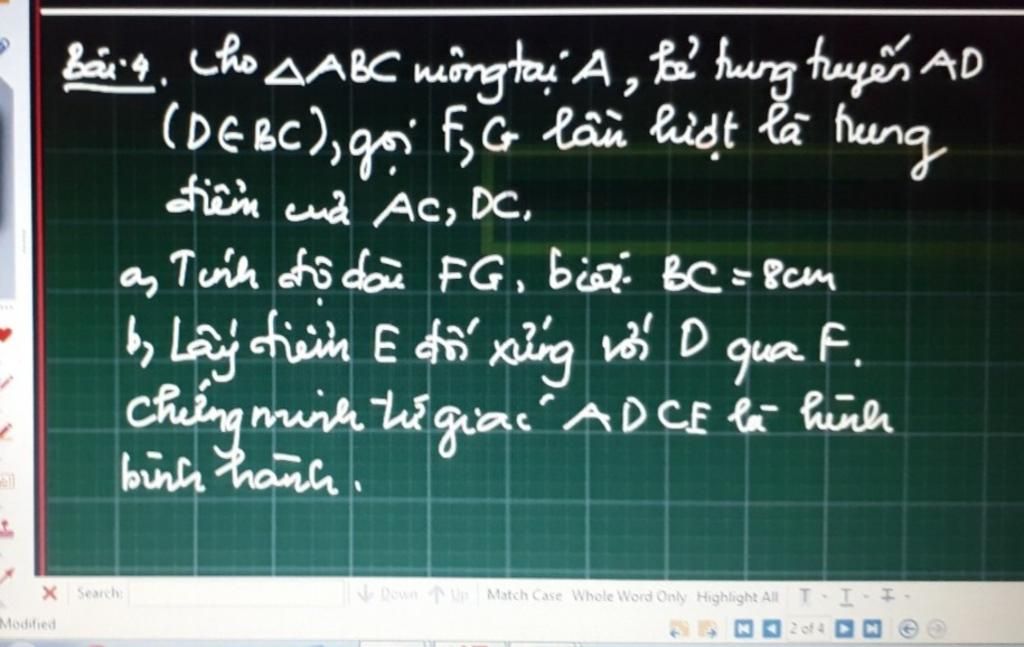 Bài 4. Cho △ABC vuông tại A, kẻ trung tuyến AD
(D∈BC), gọi F, G lần lượt là trung
điểm của AC, DC.
a, Tính độ dài FG, biết BC = 8cm
b, Lấy điểm E đối xứng với D qua F.
Chứng minh tứ giác ADCE là hình
bình hành.
Search: Down Up Match Case Whole Word Only Highlight All
Modified
2 of 4